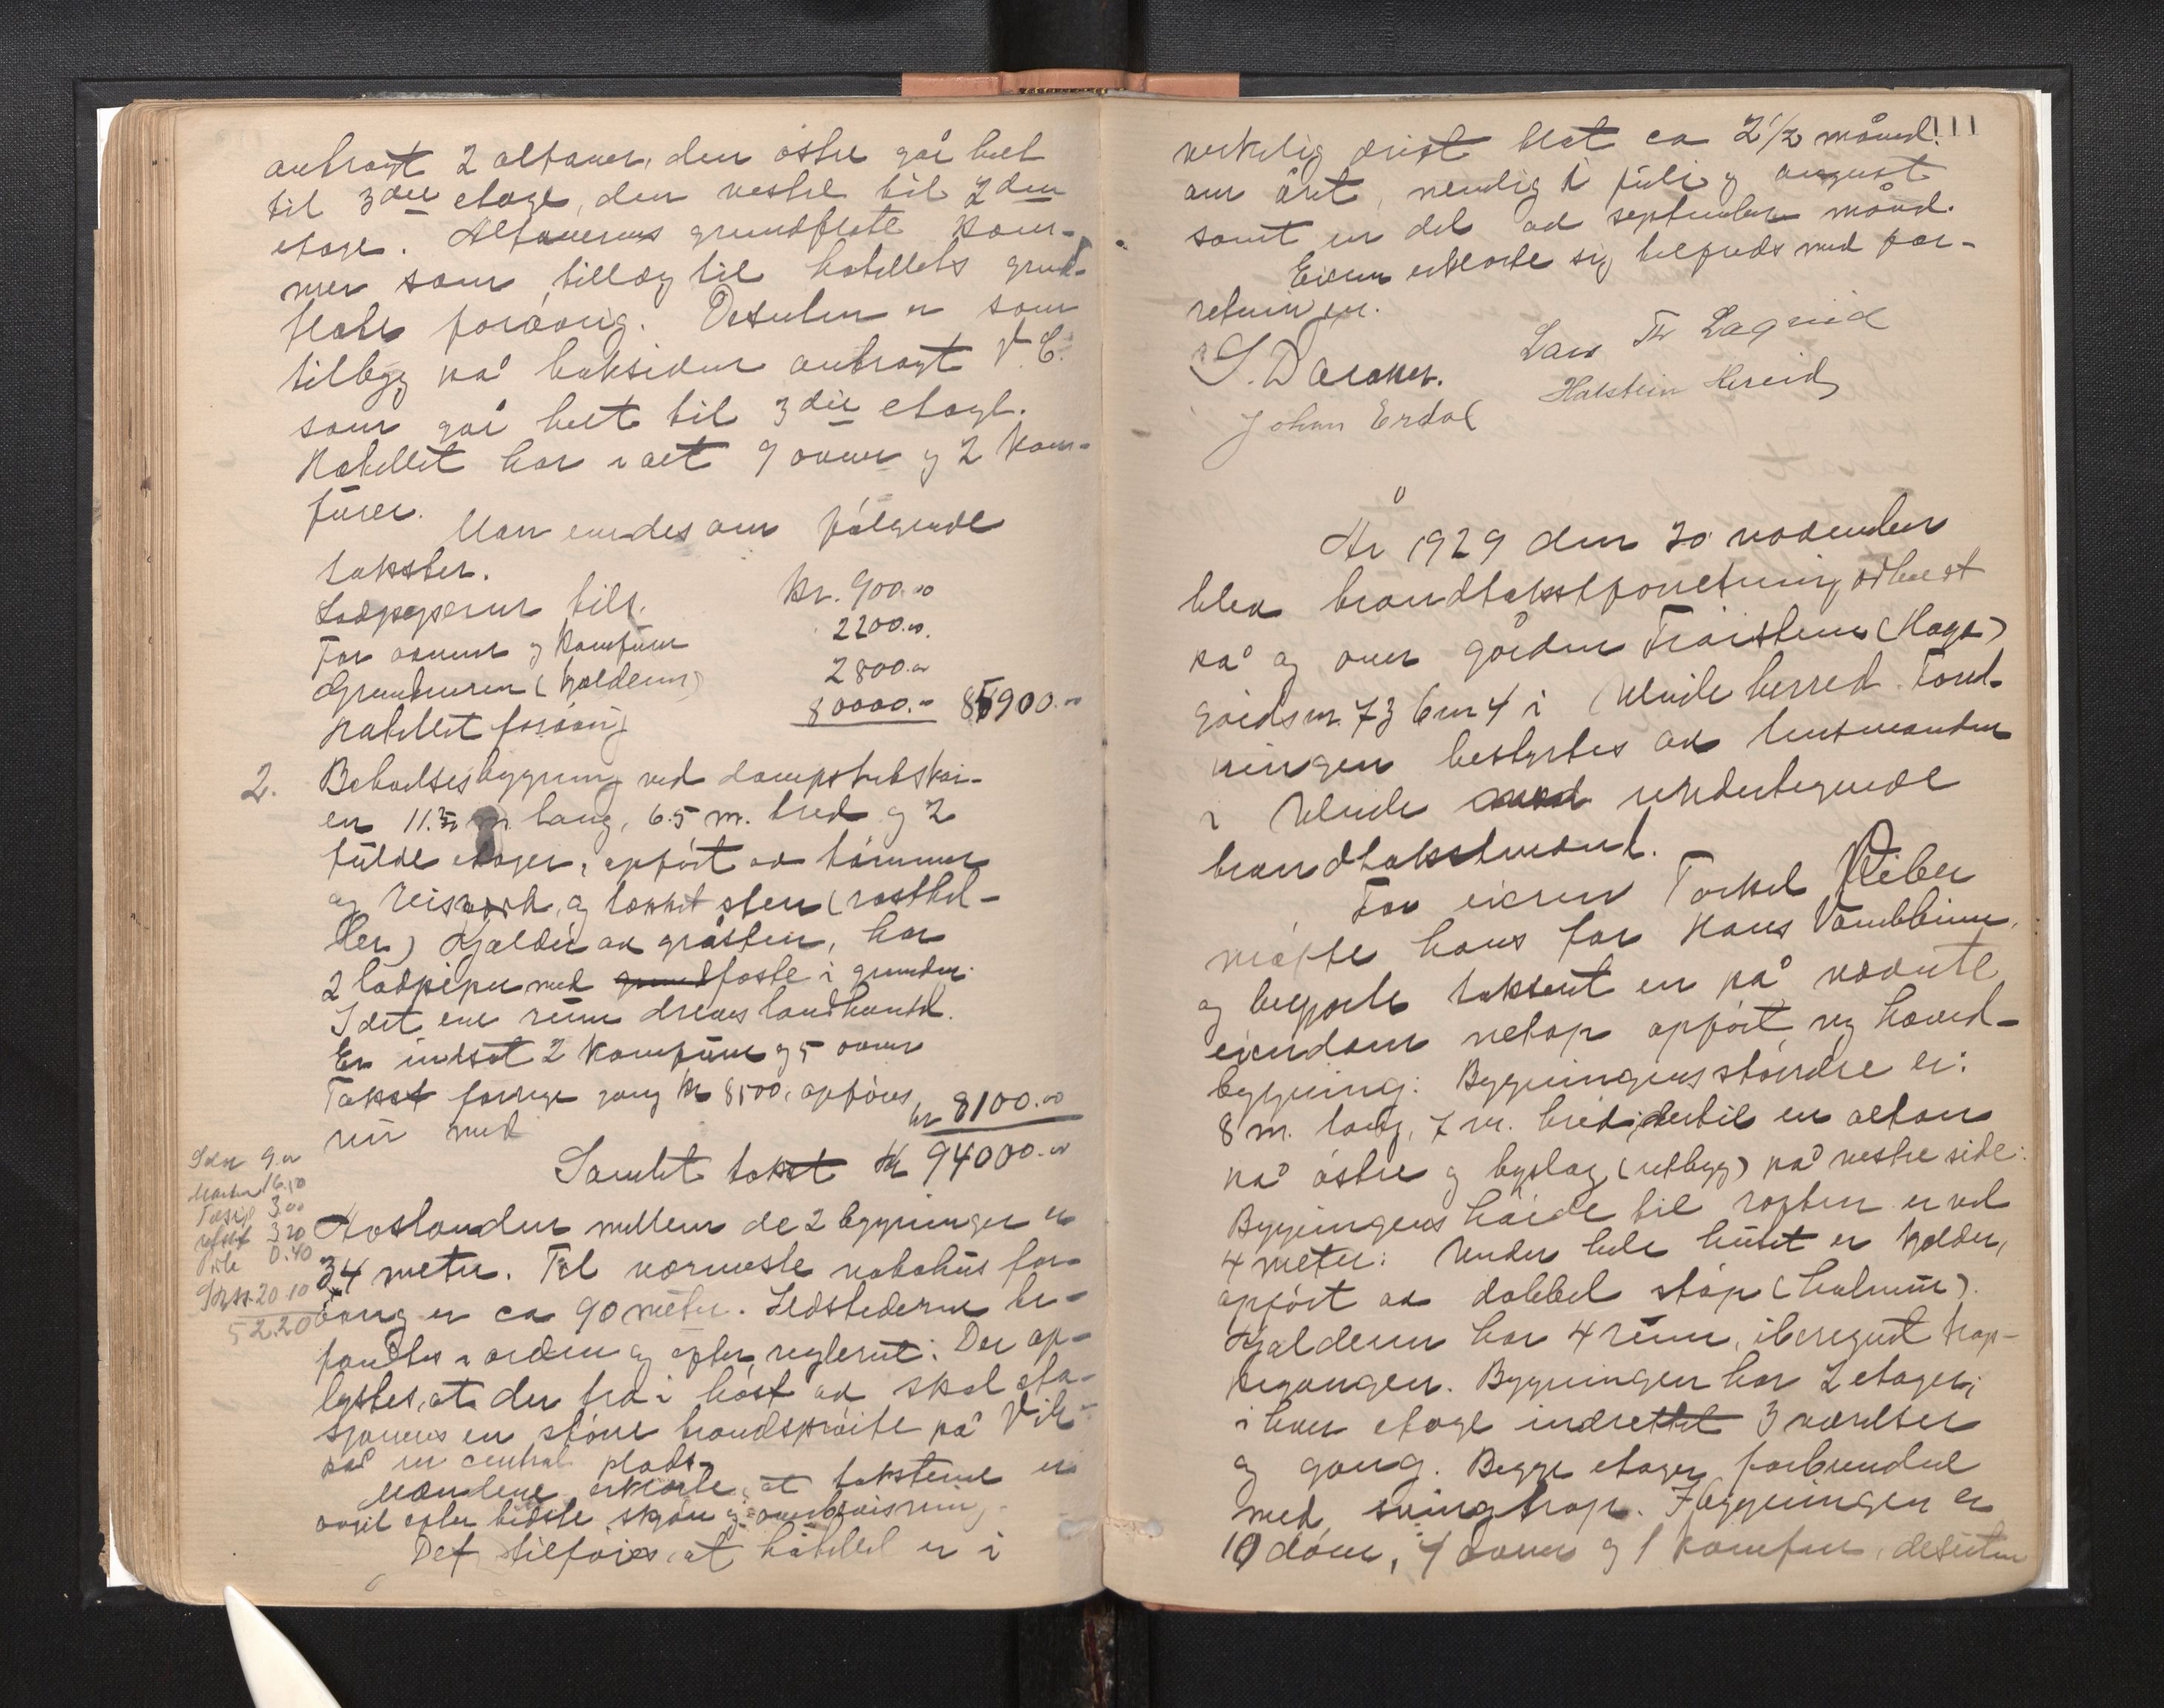 anbragt 2 altaner, den østre går helt
til 3die etage, den vestre til 2den
etage. Altanernes grundflate kom-
mer som tillæg til hotellets grund-
flate forøvrig. Desuten er som
tilbygg på baksiden anbragt V.C.
som går helt til 3die etage.
Hotellet har i alt 9 ovner og 2 kom-
fürer.
Man enedes om følgende
takster.
Ladpiperne tils. kr. 900.00
For ovnene og komfürene 2200.00
Grundmuren (kjelderen) 2800.00
Hotellet forøvrig 80000.- 85900.-
2. Beboelsesbygning ved dampskibskai-
en 11. m lang, 6.5 m. bred og 2
fülde etager, opført av tømmer
og reisverk, og tækket sten (rasthel-
ler) Kjelder av gråsten, har
2 ladpiper med feste i grunden.
I det ene rüm drives landhandel.
Er indsat 2 komfürer og 5 ovner
Takst forrige gang kr 8500, opføres
nü med kr 8100.00
Samlet takst kr 94000.00
Sdr 9.00
16.50
3.00
3.20
0.40
20.10
52.20
Avstanden mellem de 2 bygninger er
34 meter. Til nærmeste nabohüs for-
øvrig er ca 90 meter. Ildstederne be-
fandtes i orden og efter reglerne. Der op-
lystes, at der fra i høst av skal sta-
sjoneres en større brandsprøite på Vik-
på en central plads.
Mændene erklærte, at taksterne er
avgit efter bedste skjøn og overbevisning.
Det tilføies, at hotellet er i
111
virkelig drift blot ca 2 1/2 måned
om året, nemlig i jüli og august
samt en del av september måned.
Eieren erklærte sig tilfreds med for-
retningen.
Lars Th Lægreid
Halstein Hereid
Johan Erdal
År 1929 den 30 november
blev brandtakstforretning avholdt
på og over gården Traisteen (Haga)
gårdsnr. 73 bnr 4 i Ulvik herred. Forret-
ningen bestyrtes av lensmanden
i Ulvik med undertegnede
brandtakstmænd.
For eieren Torkel Viber
møtte hans far Hans Vambheim
og begjærte taksert en på nævnte
eiendom netop opført ny hoved-
bygning. Bygningens størrelse er:
8 m. lang, 7 m. bred, dertil en altan
på østre og byslag (utbygg) på vestre side.
Bygningens høide til røsten er ved
4 meter. Under hele hüset er kjelder,
opført av dobbel støp (hulmür).
Kjelderen har 4 rüm, iberegnet trap-
pegangen. Bygningen har 2 etager;
i hver etage indrettet 3 værelser
og gang. Begge etager forbundne
med svingtrap. I bygningen er
10 døre, 4 ovner og 1 komfür, desuten